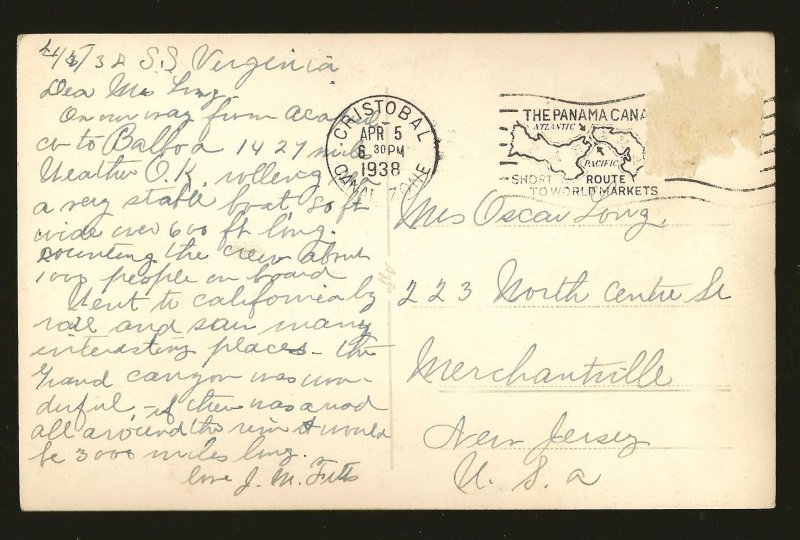 4/3/38 S.S Virginia
Dear Mrs Long
On our way from Acapul
co to Balboa 1427 mile
Weather O.K. rolling
a very stable boat 80 ft
wide over 600 ft long.
counting the crew about
1000 people on board
Went to california by
rail and saw many
interesting places - the
Grand canyon was won-
derful, if there was a road
all around the rim it would
be 3000 miles long.
love J. M.
CRISTOBAL
APR 5
6 30 PM
1938
CANAL ZONE
THE PANAMA CANA
ATLANTIC
PACIFIC
SHORT ROUTE
TO WORLD MARKETS
Mrs Oscar Long,
223 North Centre St
Merchantville
New Jersey
U. S. a